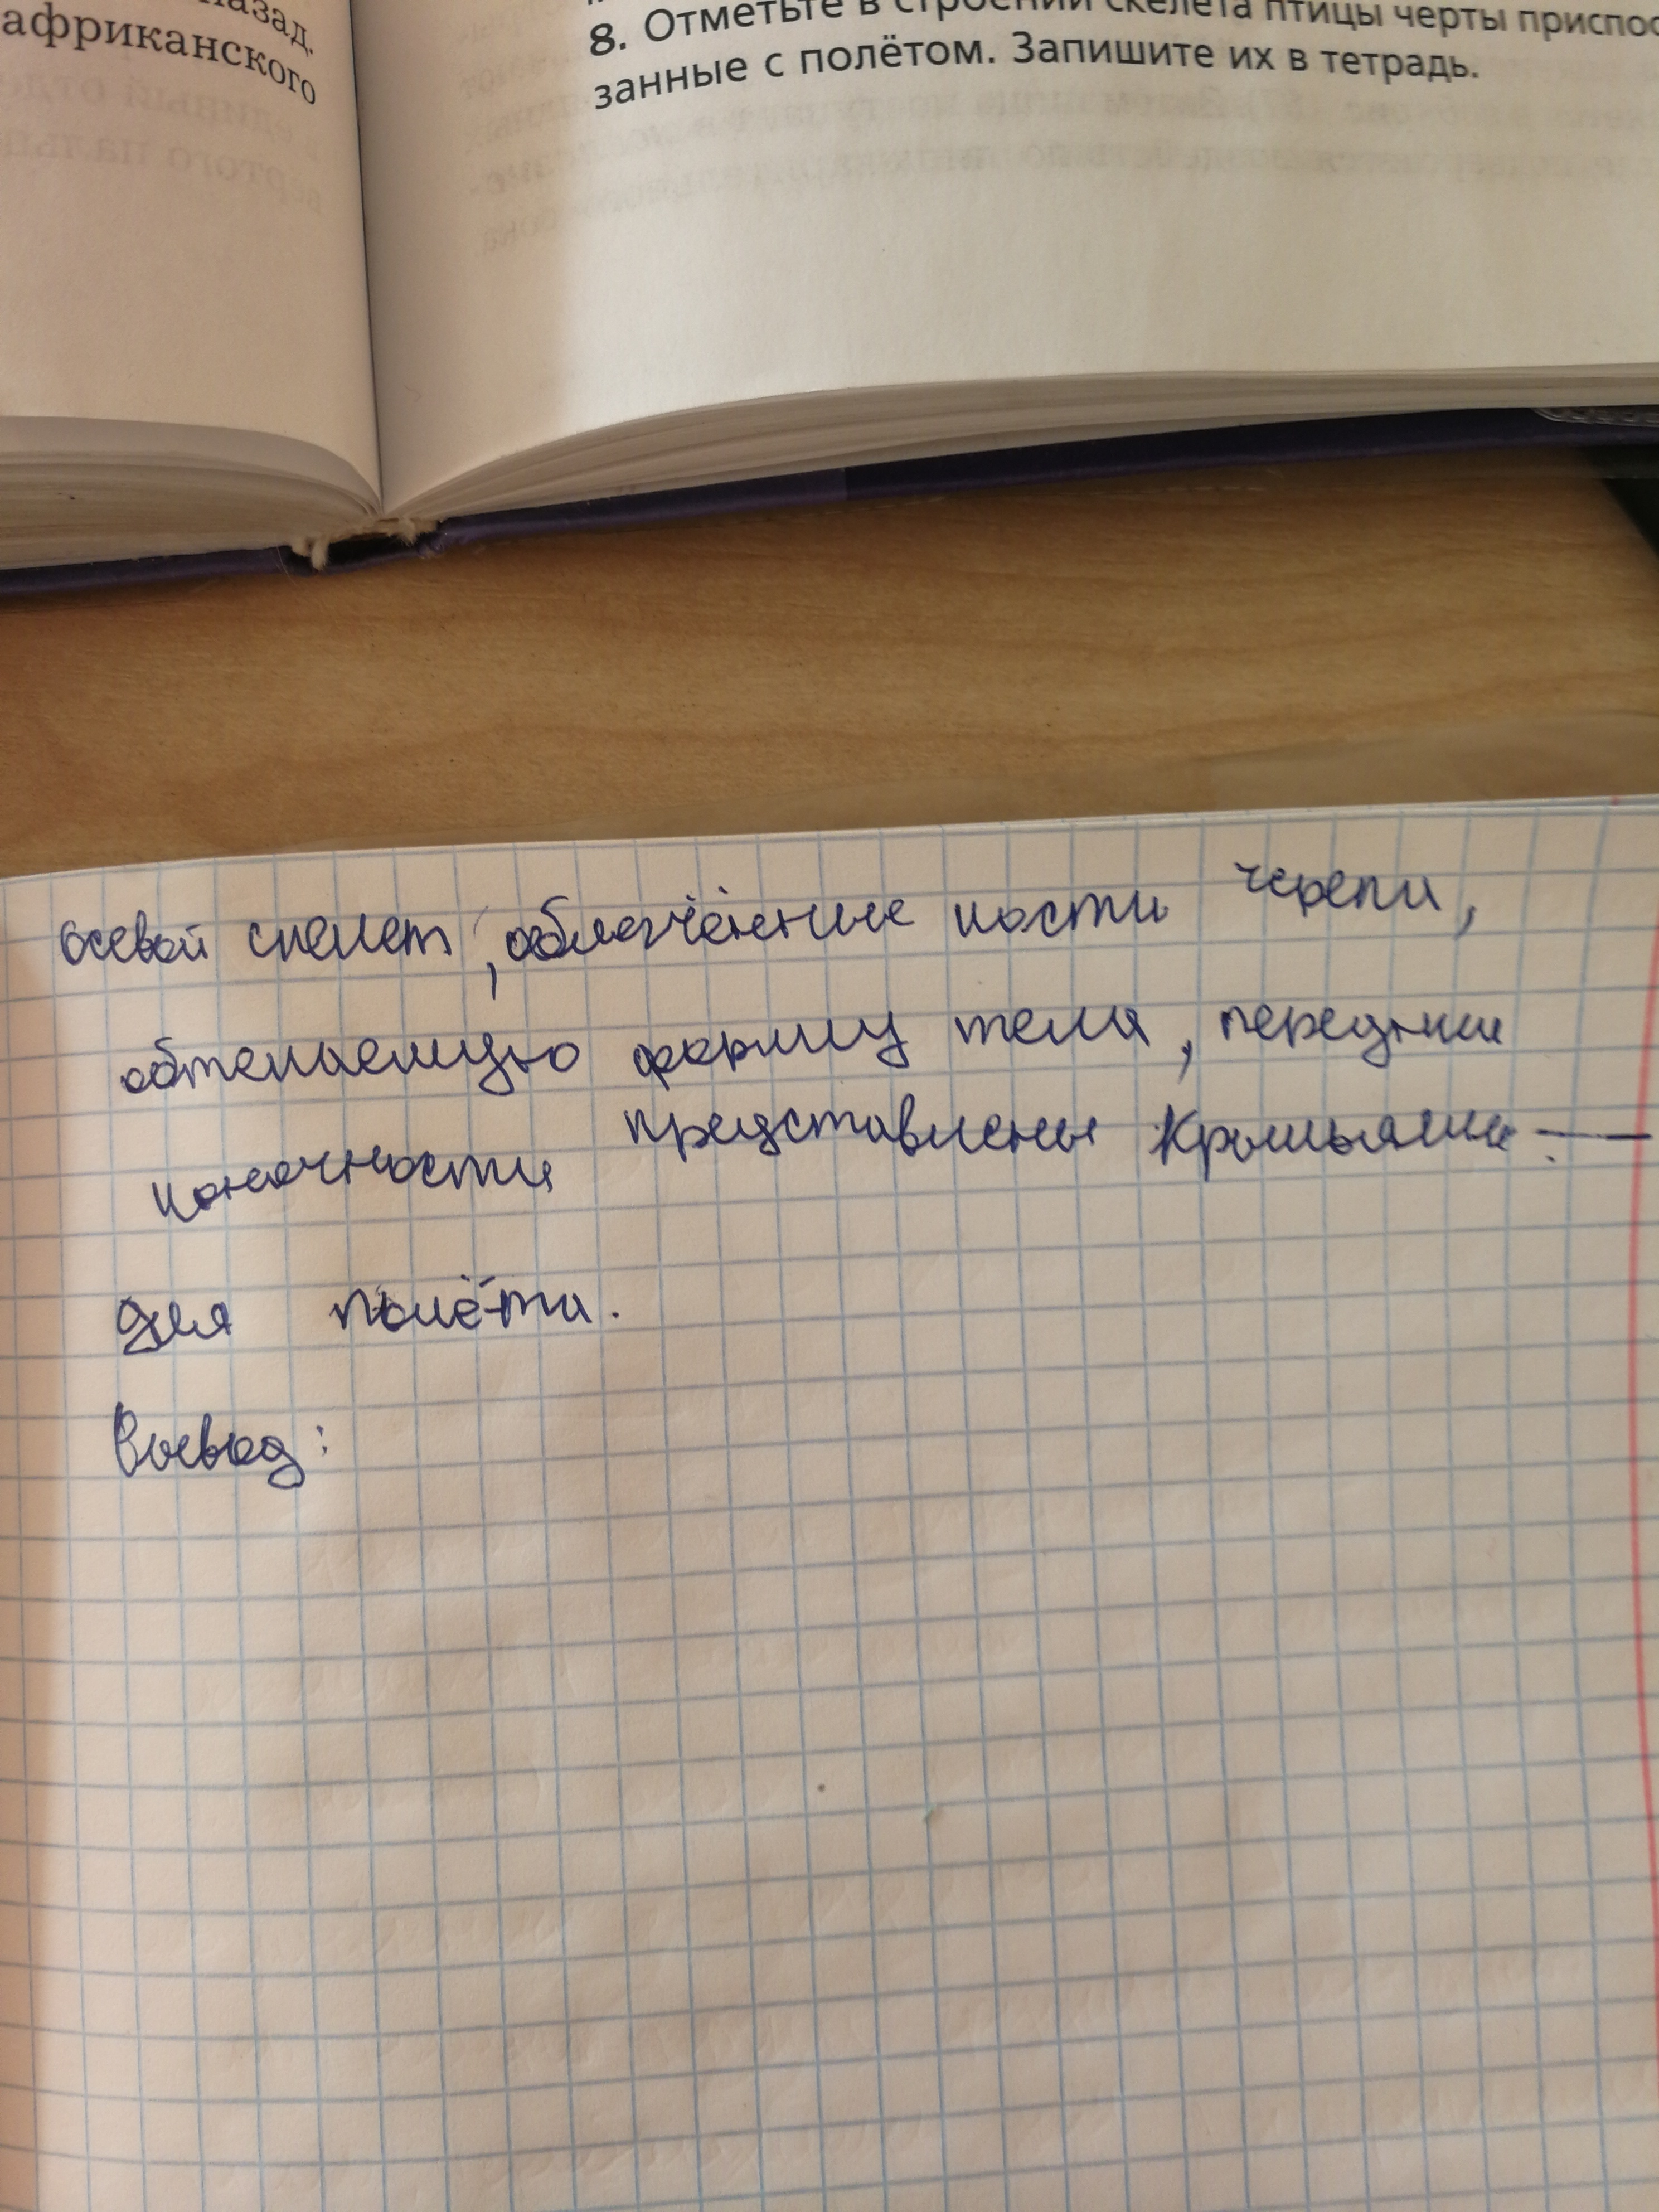 назад.
африканского
8. Отметьте в строении скелета птицы черты приспос
занные с полётом. Запишите их в тетрадь.
осевой скелет, облегчённые кости черепа,
обтекаемую форму тела, передние
конечности представлены крыльями —
для полёта.
Вывод: